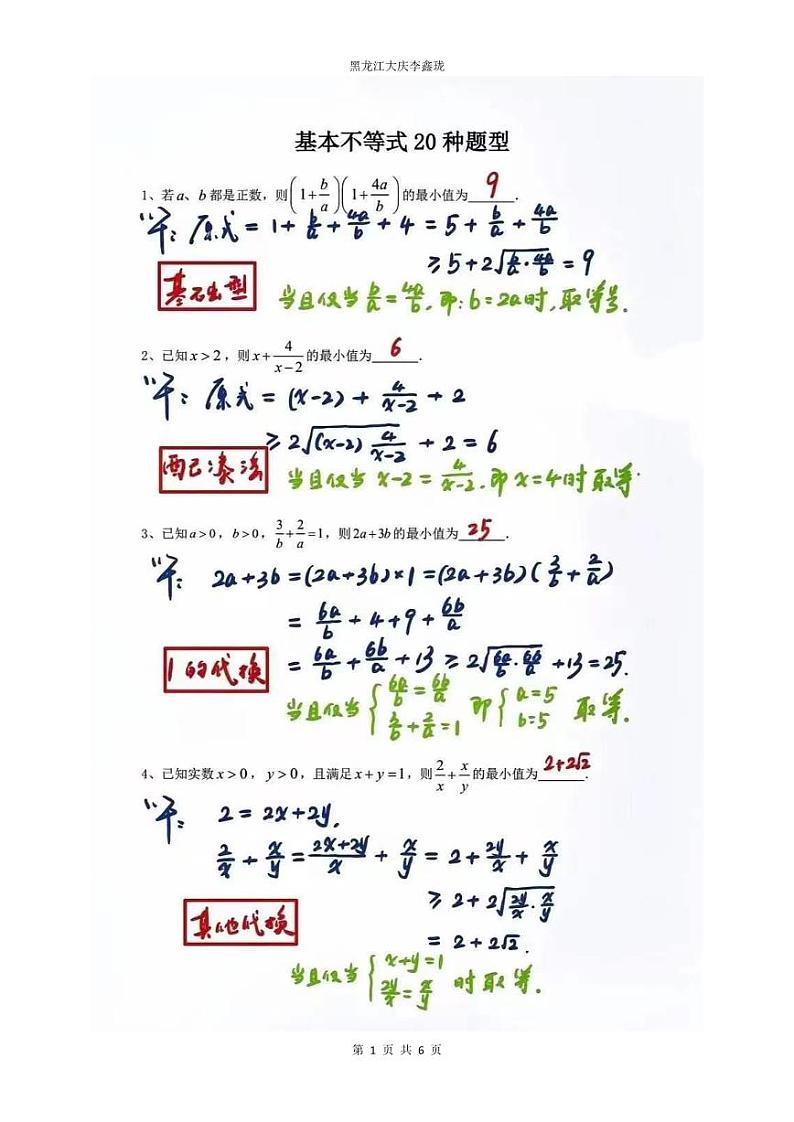 黑龙江大庆李鑫珑
基本不等式 20 种题型
1、若 a、b 都是正数，则 (1+b/a)(1+4a/b) 的最小值为 9 .
"干: 原式 = 1 + b/a + 4a/b + 4 = 5 + b/a + 4a/b
≥ 5 + 2√(b/a · 4a/b) = 9
基石出型
当且仅当 b/a = 4a/b, 即: b = 2a时, 取等号.
2、已知 x > 2，则 x + 4/(x−2) 的最小值为 6 .
"干: 原式 = (x−2) + 4/(x−2) + 2
≥ 2√((x−2) 4/(x−2)) + 2 = 6
配凑法
当且仅当 x−2 = 4/(x−2). 即 x = 4时 取等.
3、已知 a > 0，b > 0，3/b + 2/a = 1，则 2a + 3b 的最小值为 25 .
"干: 2a+3b = (2a+3b)×1 = (2a+3b)(3/b + 2/a)
= 6a/b + 4 + 9 + 6b/a
= 6a/b + 6b/a + 13 ≥ 2√(6a/b · 6b/a) + 13 = 25.
1的代换
当且仅当 { 6a/b = 6b/a, 3/b + 2/a = 1 即 { a=5, b=5 取等.
4、已知实数 x > 0，y > 0，且满足 x + y = 1，则 2/x + x/y 的最小值为 2+2√2 .
"干: 2 = 2x+2y.
2/x + x/y = (2x+2y)/x + x/y = 2 + 2y/x + x/y
≥ 2 + 2√(2y/x · x/y)
= 2 + 2√2 .
其他代换
当且仅当 { x+y=1, 2y/x = x/y 时 取等.
第 1 页 共 6 页